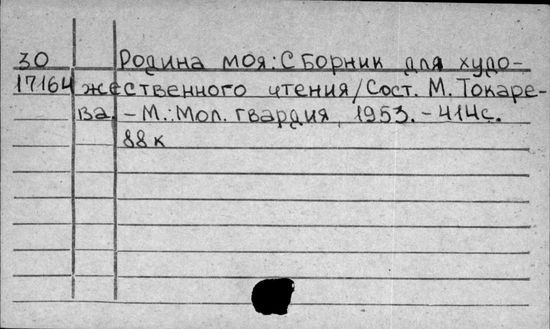 30 Родина моя: Сборник для худо-
17164 жественного чтения/Сост. М. Токаре-
ва. - М.: Мол. гвардия, 1953. - 414с.
88к